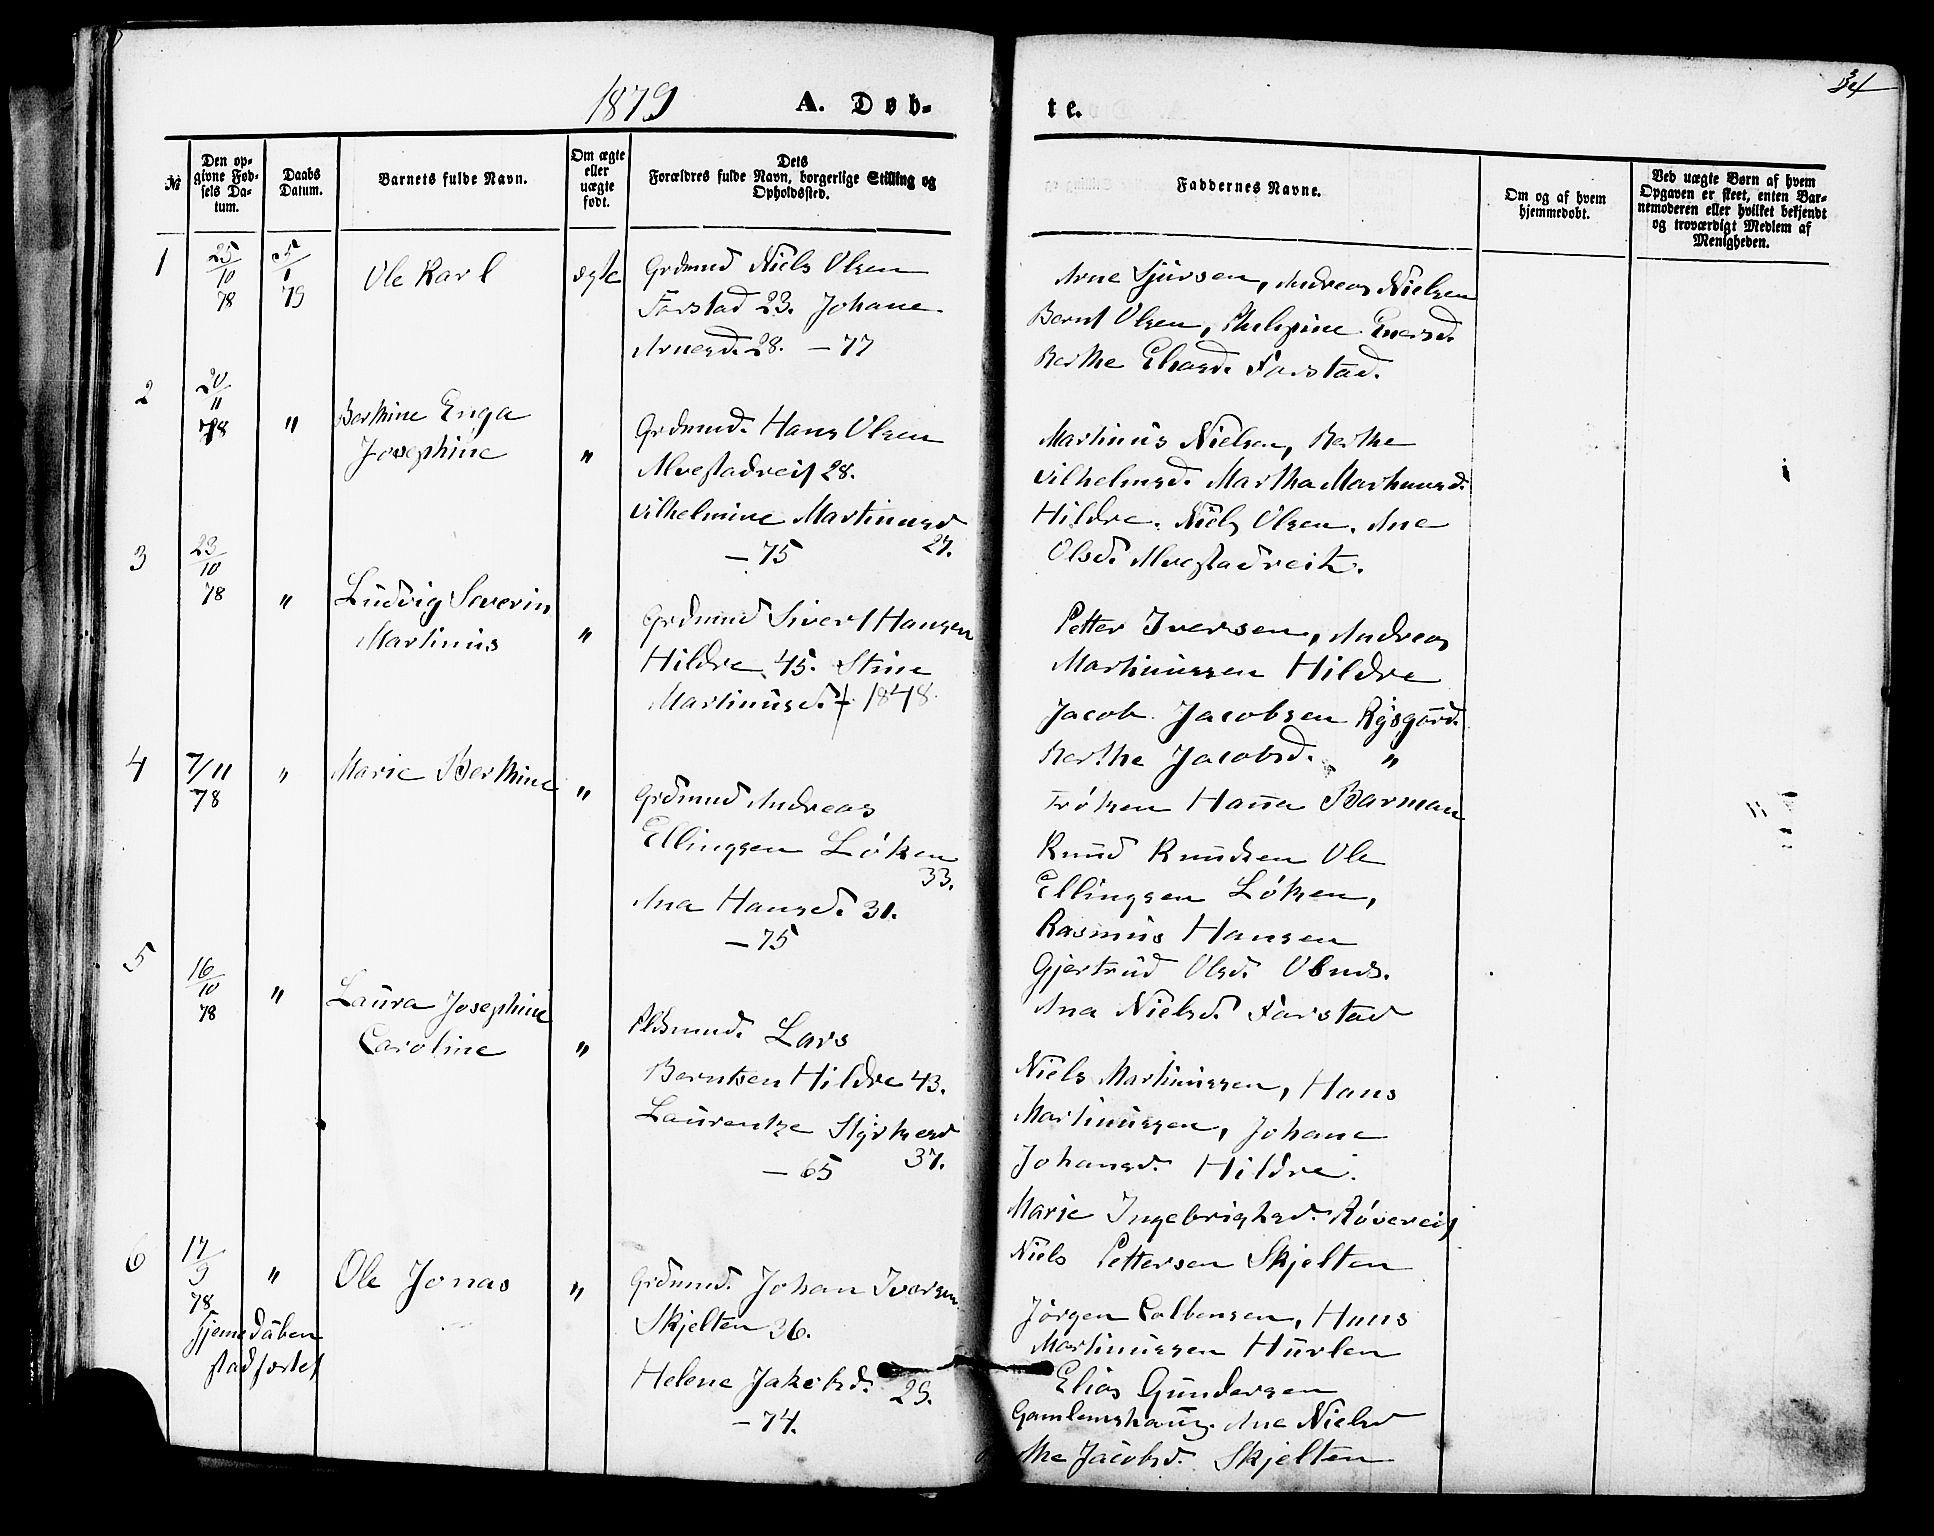 1879 A. Døb-
te.
34
№
Den op-
givne Fød-
sels Da-
tum.
Daabs
Datum.
Barnets fulde Navn.
Om ægte
eller
uægte
født.
Dets
Forældres fulde Navn, borgerlige Stilling og
Opholdssted.
Faddernes Navne.
Om og af hvem
hjemmedøbt.
Ved uægte Børn af hvem
Opgaven er skeet, enten Bar-
nemoderen eller hvilket bekjendt
og troværdigt Medlem af
Menigheden.
1
25/10 78
5/1 79
Ole Karl
ægte
Grdmnd Niels Olsen
Farstad 23. Johane
Arnesd. 28. - 77
Arne Sjursen, Andreas Nielsen
Bernt Olsen,
Berthe Eliasd. Farstad.
2
20/11 78
"
Berthine Enga
Josephine
"
Grdmnd. Hans Olsen
Alvestadreit 28.
Vilhelmine Martinusd
27.
- 75
Martinus Nielsen, Berthe
Vilhelmsd. Martha Martinusd.
Hildre. Niels Olsen. Ane
Olsd. Alvestadreit.
3
23/10 78
"
Ludvig Severin
Martinus
"
Grdmnd Sivert Hansen
Hildre 45. Stine
Martinusd. + 1848.
Petter Iversen, Andreas
Martinussen Hildre
Jacob Jacobsen Rysgård.
Berthe Jacobsd. "
4
7/11 78
"
Marie Berthine
"
Grdmnd Andreas
Ellingsen Löken
33.
Ana Hansd. 31.
- 75
Fröken Hanna Barman
Knud Knudsen Ole
Ellingsen Löken,
Rasmus Hansen
Gjertrud Olsd.
Ana Nielsd. Farstad
5
16/10 78
"
Laura Josephine
Caroline
"
Pldsmnd. Lars
Berntsen Hildre 43.
Laurentze Styrkersd
37.
- 65
Niels Martinussen, Hans
Martinussen, Johane
Johansd. Hildre.
Marie Ingebrigtsd. Rövereit
6
17/9 78
"
Hjemedåben
stadfæstet
Ole Jonas
"
Grdmnd. Johan Iversen
Skjelten 36.
Helene Jakobsd. 29.
- 74.
Niels Pettersen Skjelten
Jörgen Colbensen, Hans
Martinussen Hurlen
Elias Gundersen
Gamlemshaug. Ane Nielsd
Jacobsd. Skjelten